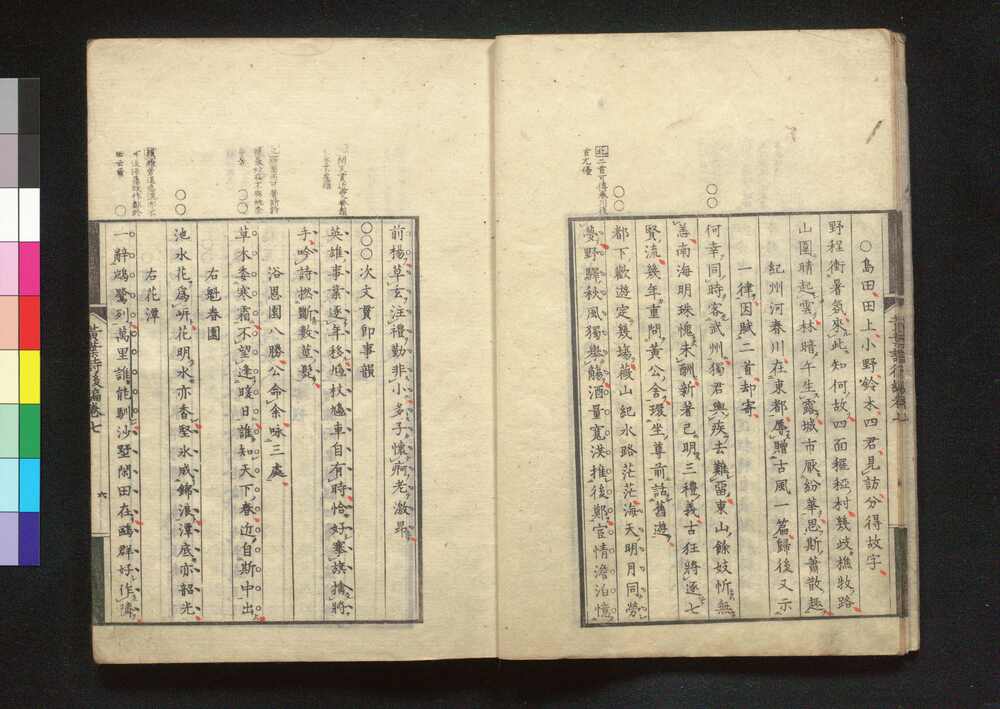 〇島田田上小野鈴木四君見訪分得故字
野程衝暑気來此知何故四面樞椏村幾歧樵牧路
山圍晴起雲林暗午生露城市厭紛華思斯蕭散趣
紀州河春川在東都辱贈古風一篇歸後又示
一律因賦二首却寄
〇〇
何幸同時客武州獨君輿疾去難畱東山餘妓忻無
恙南海明珠愧未酬新著已明三禮義古狂將逐七
賢流幾年重問黃公舍環坐尊前話舊遊
〇〇
都下歡遊定幾場薇山紀水路茫茫海天明月同勞
夢野驛秋風獨擧觴酒量寬洪推後鄭宦情澹泊憶
前楊草玄注禮勤非小多子懷痾老澈昂
〇〇〇次文貫卯事韻
英雄事業逐年移鳩杖鳩車自有時恰好搴旗擒將
手吟詩撚斷數莖髭
浴恩園八勝公命余咏三處
〇〇
草木委寒霜不望逢暖日誰知天下春近自斯中出
右魁春園
〇〇
池水花爲妍花明水亦香堅氷威錦浪潭底亦韶光
右花潭
〇
一辭鵷鷺列萬里誰能馴沙墅閒田在鷗群好作隣
黃葉詩後編卷七
六